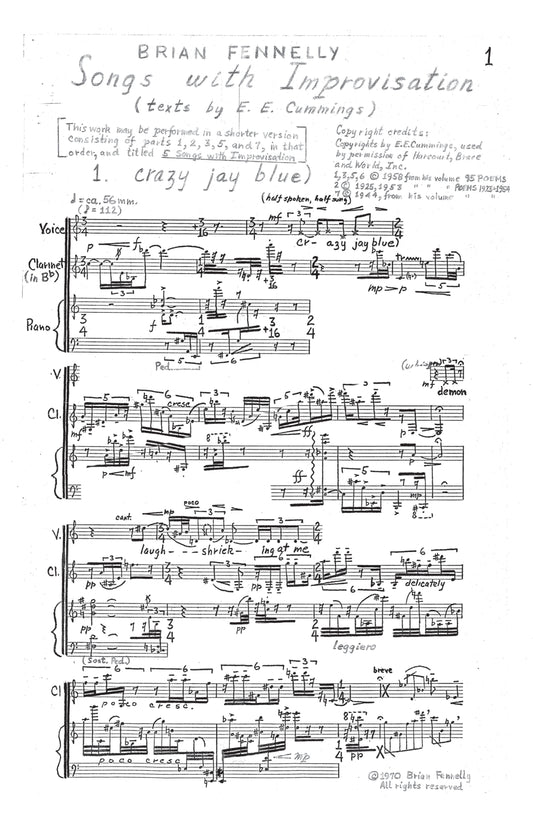 BRIAN FENNELLY
1
Songs with Improvisation
(texts by E. E. Cummings)
[This work may be performed in a shorter version
consisting of parts 1, 2, 3, 5, and 7, in that
order, and titled 5 Songs with Improvisation]
Copyright credits:
Copyrights by E.E.Cummings, used
by permission of Harcourt, Brace
and World, Inc.
1,3,5,6 © 1958 from his volume 95 POEMS
2 © 1925, 1953 " " " POEMS 1923-1954
7 © 1944, from his volume " "
1. crazy jay blue)
♩= ca. 56 mm.
(♪= 112)
(half spoken, half sung)
mf 3
Voice
cr- azy jay blue)
p f
Clarinet
(in Bb)
3
mp > p
Piano
f
Ped.
5 6
V.
mf
demon
Cl.
5 6 cresc 3
mf
ff
p
p mf
8
ff
5
mp
8
cant. mp poco
3 3
V.
laugh - - - shriek - ing at me
Cl.
3 3 6 6
pp pp
delicately
pp pp
leggiero
(Sost. Ped.)
6 6 6 3 breve
Cl
poco cresc.
poco cresc
mp
pp
© 1970 Brian Fennelly
All rights reserved